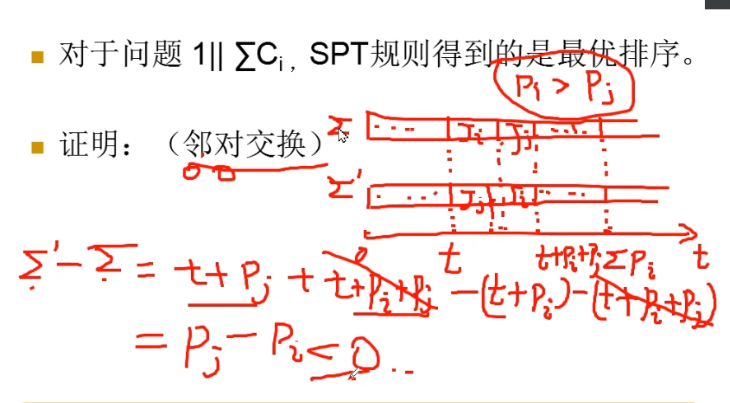 对于问题 1|| ∑Ci , SPT规则得到的是最优排序。
Pi > Pj
证明：（邻对交换）
Σ ... Ji Jj ...
Σ' ... Jj Ji ...
0 t t+Pi+Pj ΣPi t
Σ' - Σ = t+Pj + t+Pi+Pj - (t+Pi) - (t+Pi+Pj)
= Pj - Pi < 0 ..